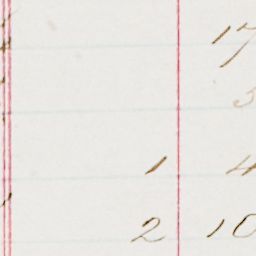 17
3
1 4
2 10